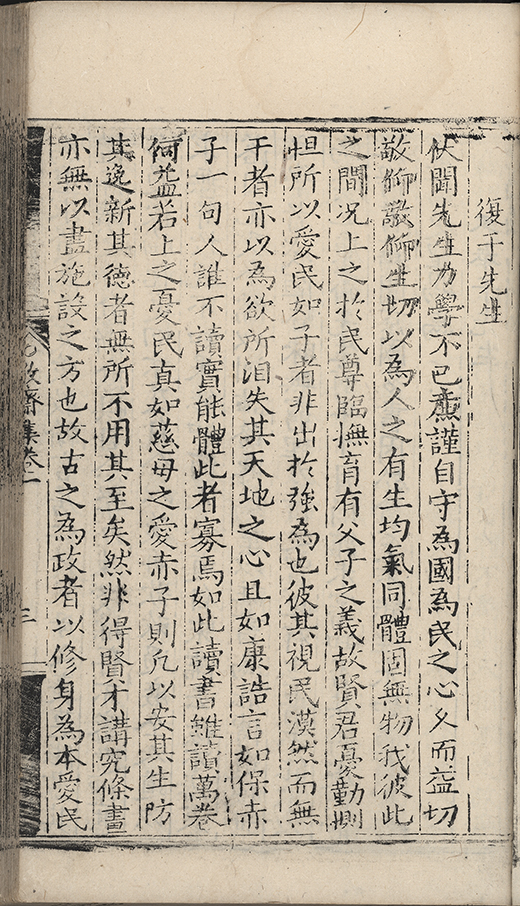 復于先生
伏聞先生力學不已亷謹自守為國為民之心久而益切
敬仰敬仰生切以為人之有生均氣同體固無物我彼此
之間况上之於民尊臨撫育有父子之義故賢君憂勤惻
怛所以愛民如子者非出於強為也彼其視民漠然而無
干者亦以為欲所汩失其天地之心且如康誥言如保赤
子一句人誰不讀實能體此者寡焉如此讀書雖讀萬卷
何益若上之憂民真如慈母之愛赤子則凡以安其生防
其逸新其德者無所不用其至矣然非得賢才講究條畫
亦無以盡施設之方也故古之為政者以修身為本愛民
敬齋集卷
三